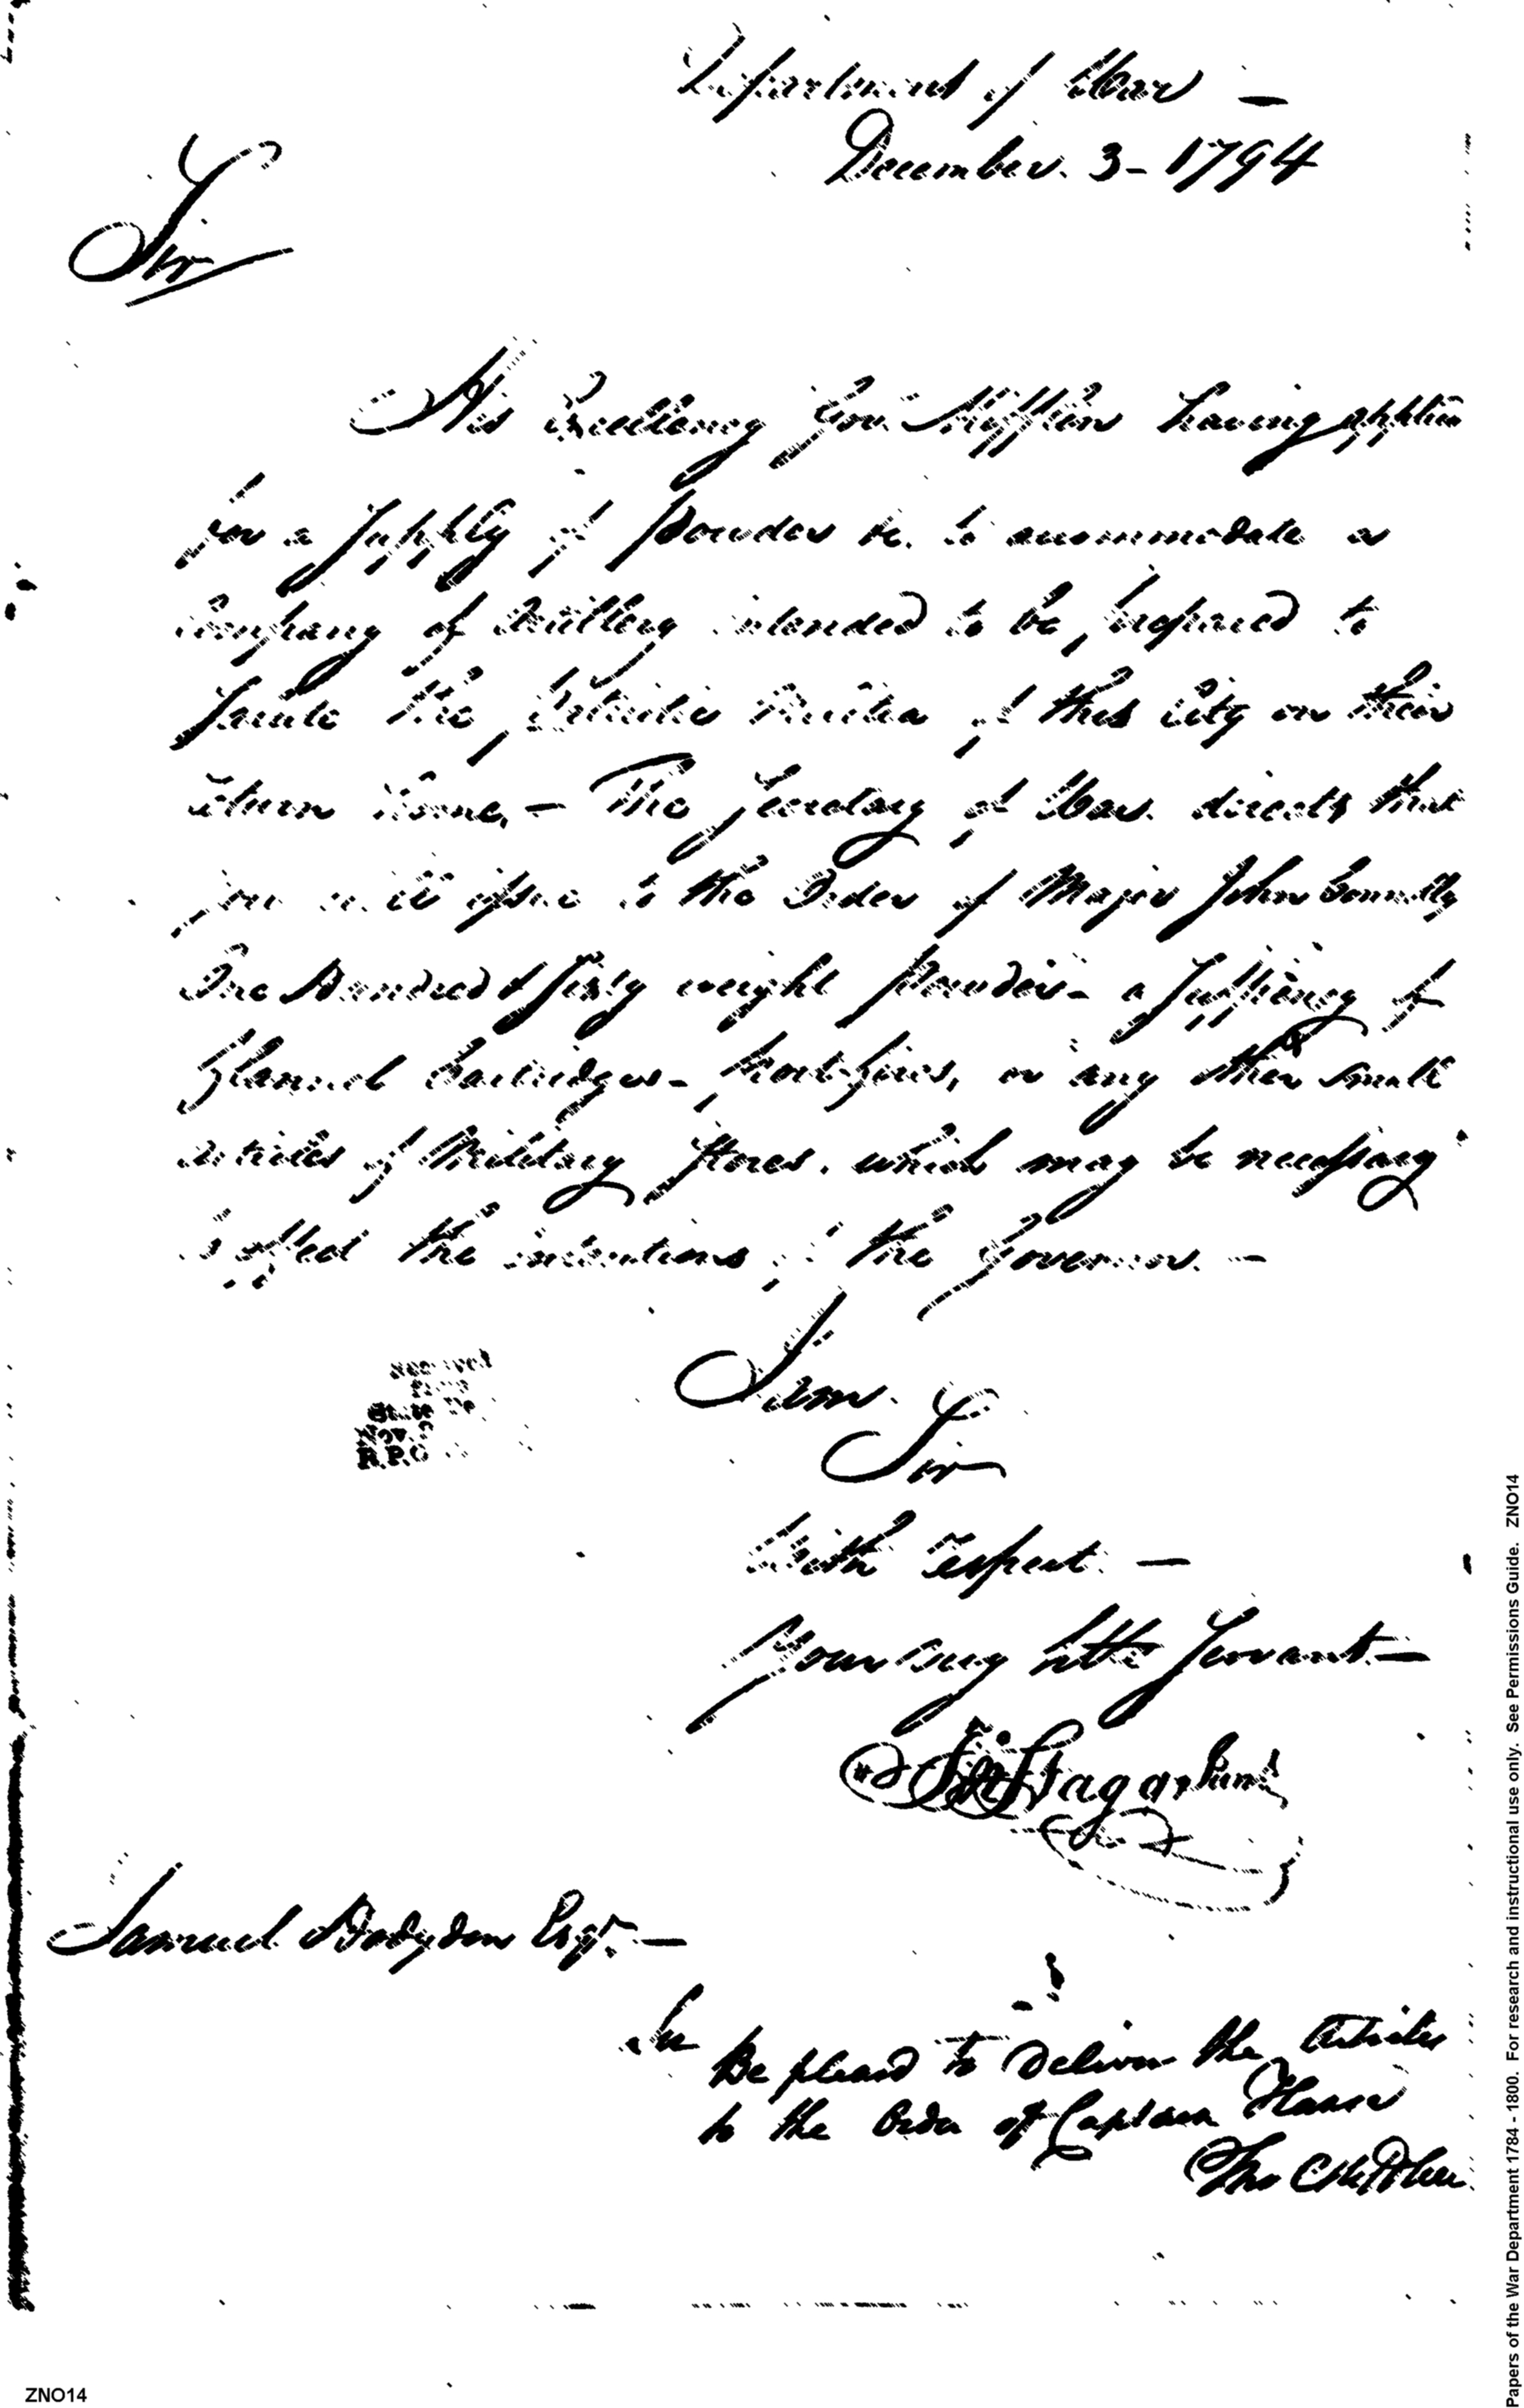 Department of War —
December. 3 - 1794
Sir
His Excellency Gov. Mifflin having applied
for a supply of powder &c. to accommodate a
Company of Artillery intended to be prepared to
salute the patriotic Militia of this City on their
return home, — The Secretary of War. directs that
you will issue to the Order of Major John Connelly
One Hundred & Sixty weight powder - a sufficiency of
flannel Cartridges - portfires, or any other small
articles of Military Stores. which may be necessary
to effect the intentions of the Governor. —
I am.
Sir
With respect. —
Your Very hble Servant —
Jn Stagg Jr
Samuel Hodgdon Esqr. —
Sir
Be pleased to Deliver the Articles
to the Order of Captain
Tho
Received
from
State De
Nov.
R.P.O
ZNO14
Papers of the War Department 1784 - 1800. For research and instructional use only. See Permissions Guide. ZNO14